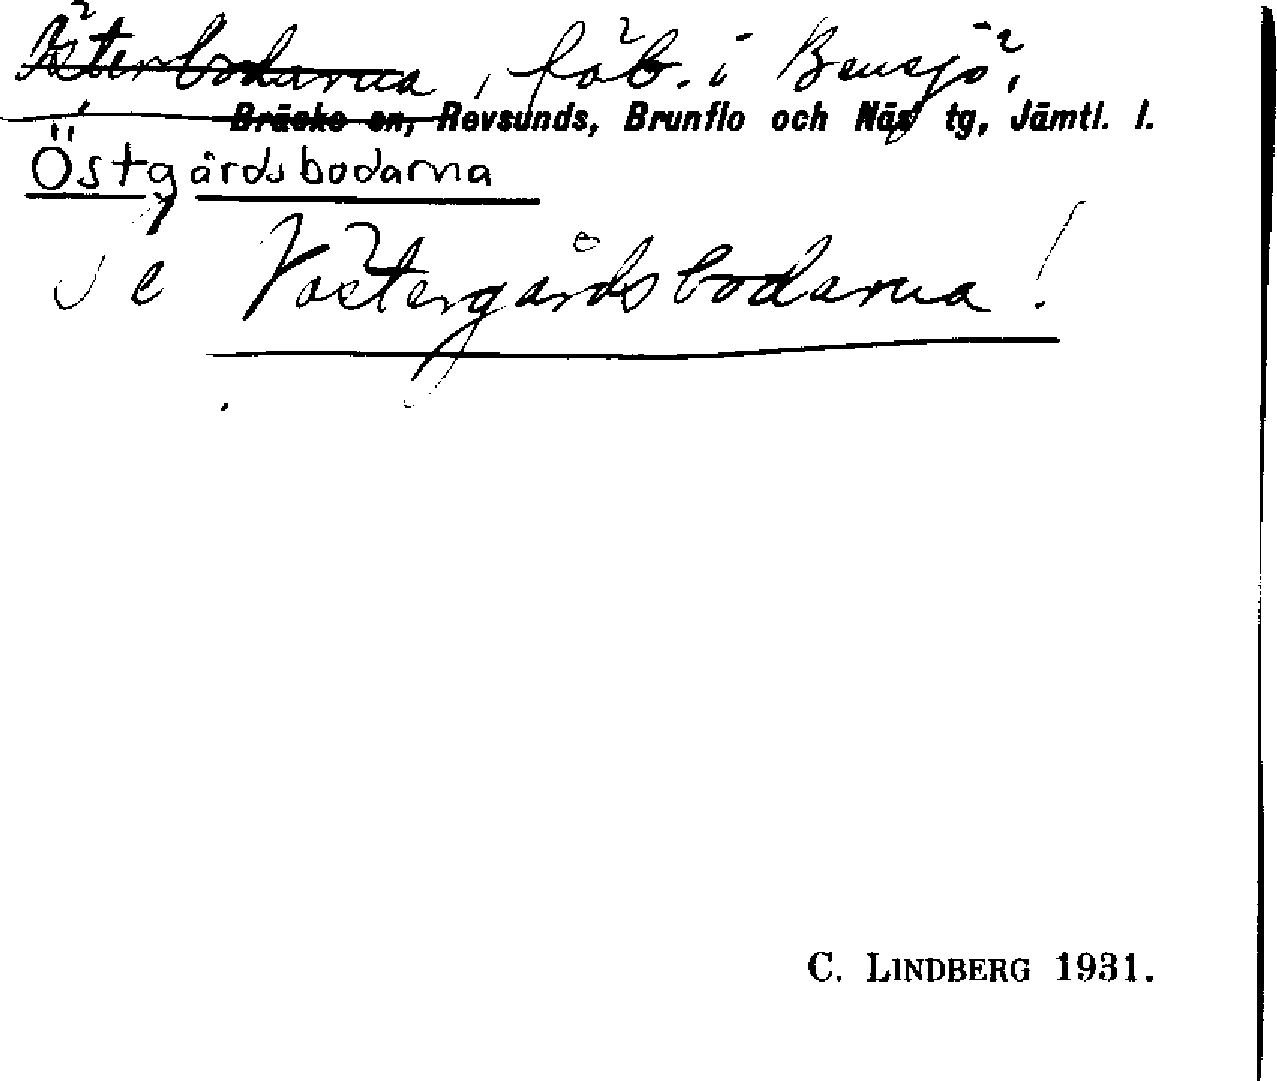 Österbodarna, fäb. i Bensjö,
Bräcke sn, Revsunds, Brunflo och Näs tg, Jämtl. l.
Östgårdsbodarna
Se Västergårdsbodarna!
C. LINDBERG 1931.